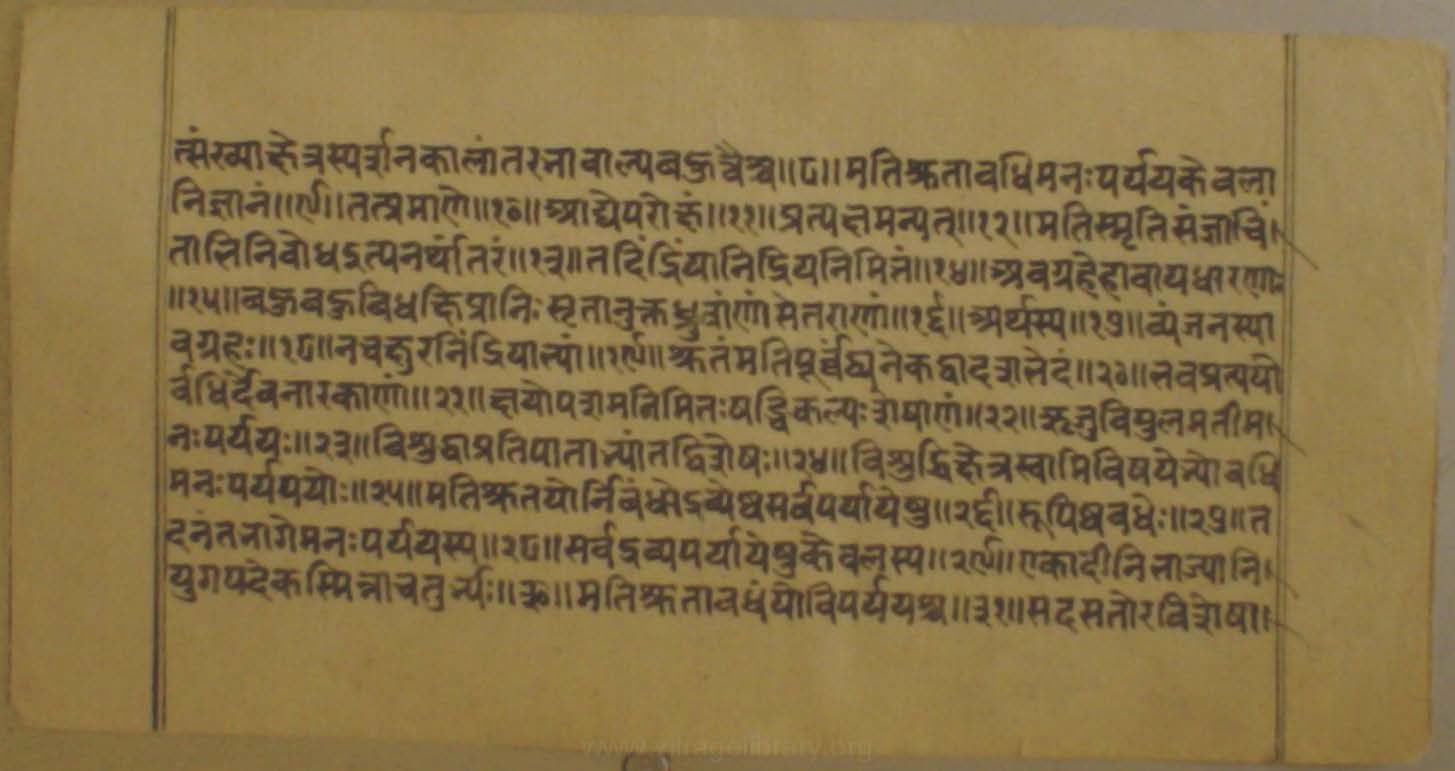 त्संख्याक्षेत्रस्पर्शनकालांतरभावाल्पबहुत्वैश्च॥८॥मतिश्रुतावधिमनःपर्ययकेवला
निज्ञानं॥९॥तत्प्रमाणे॥१०॥आद्येपरोक्षं॥११॥प्रत्यक्षमन्यत्॥१२॥मतिस्मृतिसंज्ञाचिं
ताभिनिबोधइत्यनर्थांतरं॥१३॥तदिंद्रियानिंद्रियनिमित्तं॥१४॥अवग्रहेहावायधारणाः
॥१५॥बहुबहुविधक्षिप्रानिःसृतानुक्तध्रुवाणांसेतराणां॥१६॥अर्थस्य॥१७॥व्यंजनस्या
वग्रहः॥१८॥नचक्षुरनिंद्रियाभ्यां॥१९॥श्रुतंमतिपूर्वंद्व्यनेकद्वादशभेदं॥२०॥भवप्रत्ययो
वधिर्देवनारकाणां॥२१॥क्षयोपशमनिमित्तःषड्विकल्पःशेषाणां॥२२॥ऋजुविपुलमतीम
नःपर्ययः॥२३॥विशुद्ध्यप्रतिपाताभ्यांतद्विशेषः॥२४॥विशुद्धिक्षेत्रस्वामिविषयेभ्योवधि
मनःपर्यययोः॥२५॥मतिश्रुतयोर्निबंधोद्रव्येष्वसर्वपर्यायेषु॥२६॥रूपिष्ववधेः॥२७॥त
दनंतभागेमनःपर्ययस्य॥२८॥सर्वद्रव्यपर्यायेषुकेवलस्य॥२९॥एकादीनिभाज्यानि
युगपदेकस्मिन्नाचतुर्भ्यः॥३०॥मतिश्रुतावधयोविपर्ययश्च॥३१॥सदसतोरविशेषा
www.vitragelibrary.org